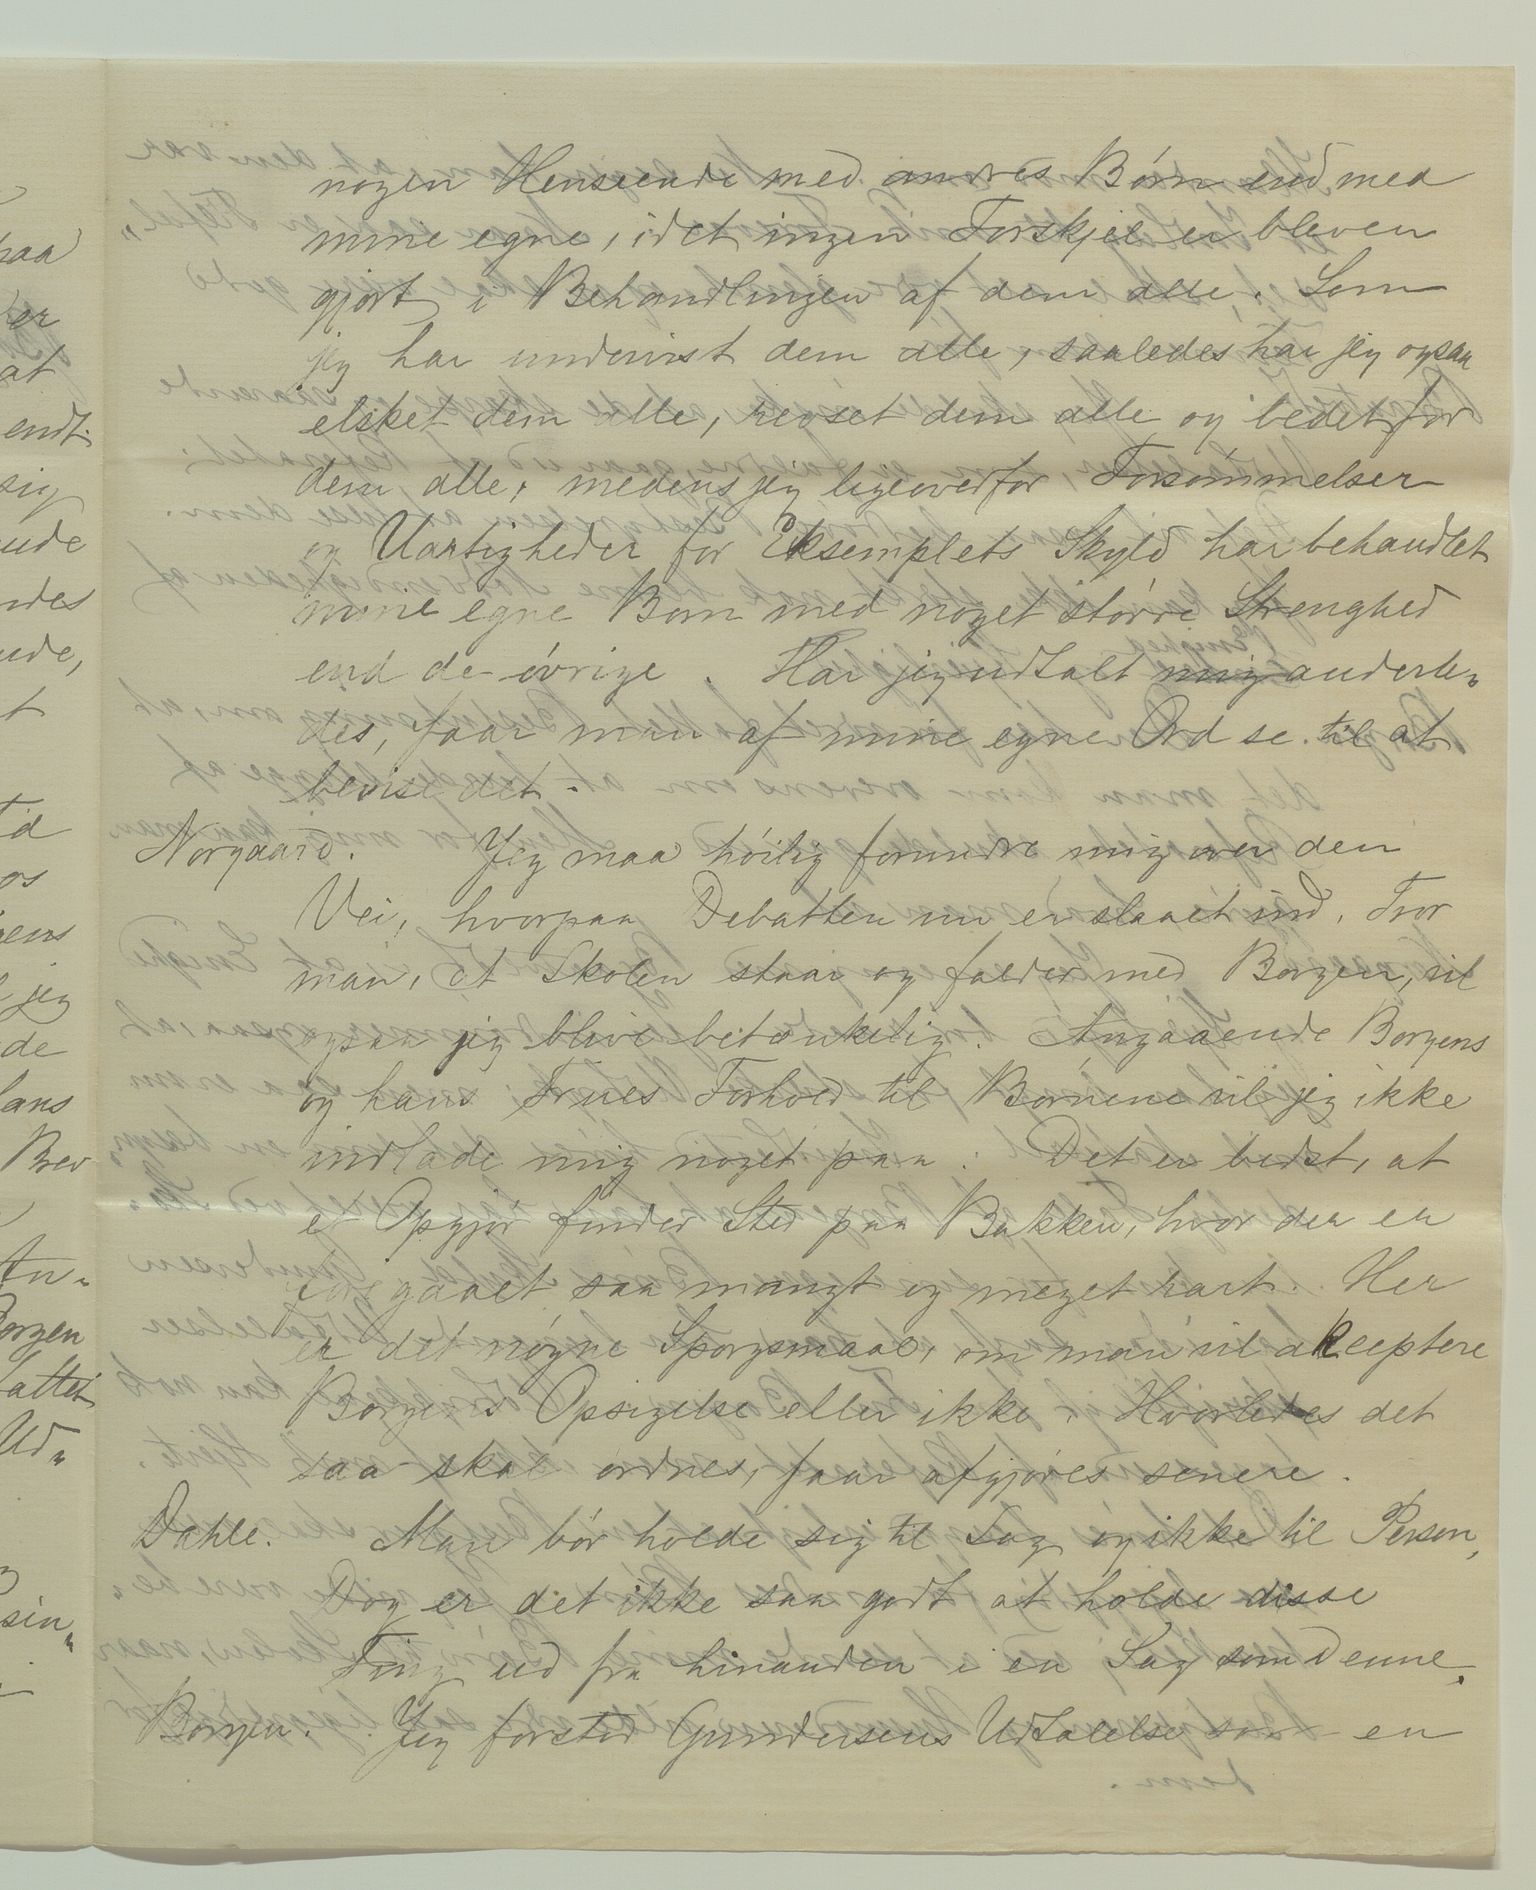 nogen Henseende med andres Børn end med
mine egne, idet ingen Forskjel er bleven
gjort i Behandlingen af dem alle. Som
jeg har undervist dem alle, saaledes har jeg ogsaa
elsket dem alle, revset dem alle og bedet for
dem alle, medens jeg ligeoverfor Forsømmelser
og Uartigheder for Eksemplets Skyld har behandlet
mine egne Børn med noget større Strenghed
end de øvrige. Har jeg udtalt mig anderle„
des, faar man af mine egne Ord se til at
bevise det.
Norgaard. Jeg maa høilig forundre mig over den
Vei, hvorpaa Debatten nu er slaaet ind. Tror
man, at Skolen staar og falder med Borgen, vil
ogsaa jeg blive betænkelig. Angaaende Borgens
og hans Frues Forhold til Børnene vil jeg ikke
indlade mig noget paa. Det er bedst, at
et Opgjør finder Sted paa Bakken, hvor der er
foregaaet saa mangt og meget rart. Her
er det nøgne Spørgsmaal, om man vil akceptere
Borgens Opsigelse eller ikke. Hvorledes det
saa skal ordnes, faar afgjøres senere.
Dahle. Man bør holde sig til Sag og ikke til Person,
Dog er det ikke saa godt at holde disse
Ting ud fra hinanden i en Sag som denne.
Borgen. Jeg forstod Gundersens Udtalelse som en
paa
er
at
endt.
sig
t
Borgen
Ud„
jeg
de
Brev
sin„